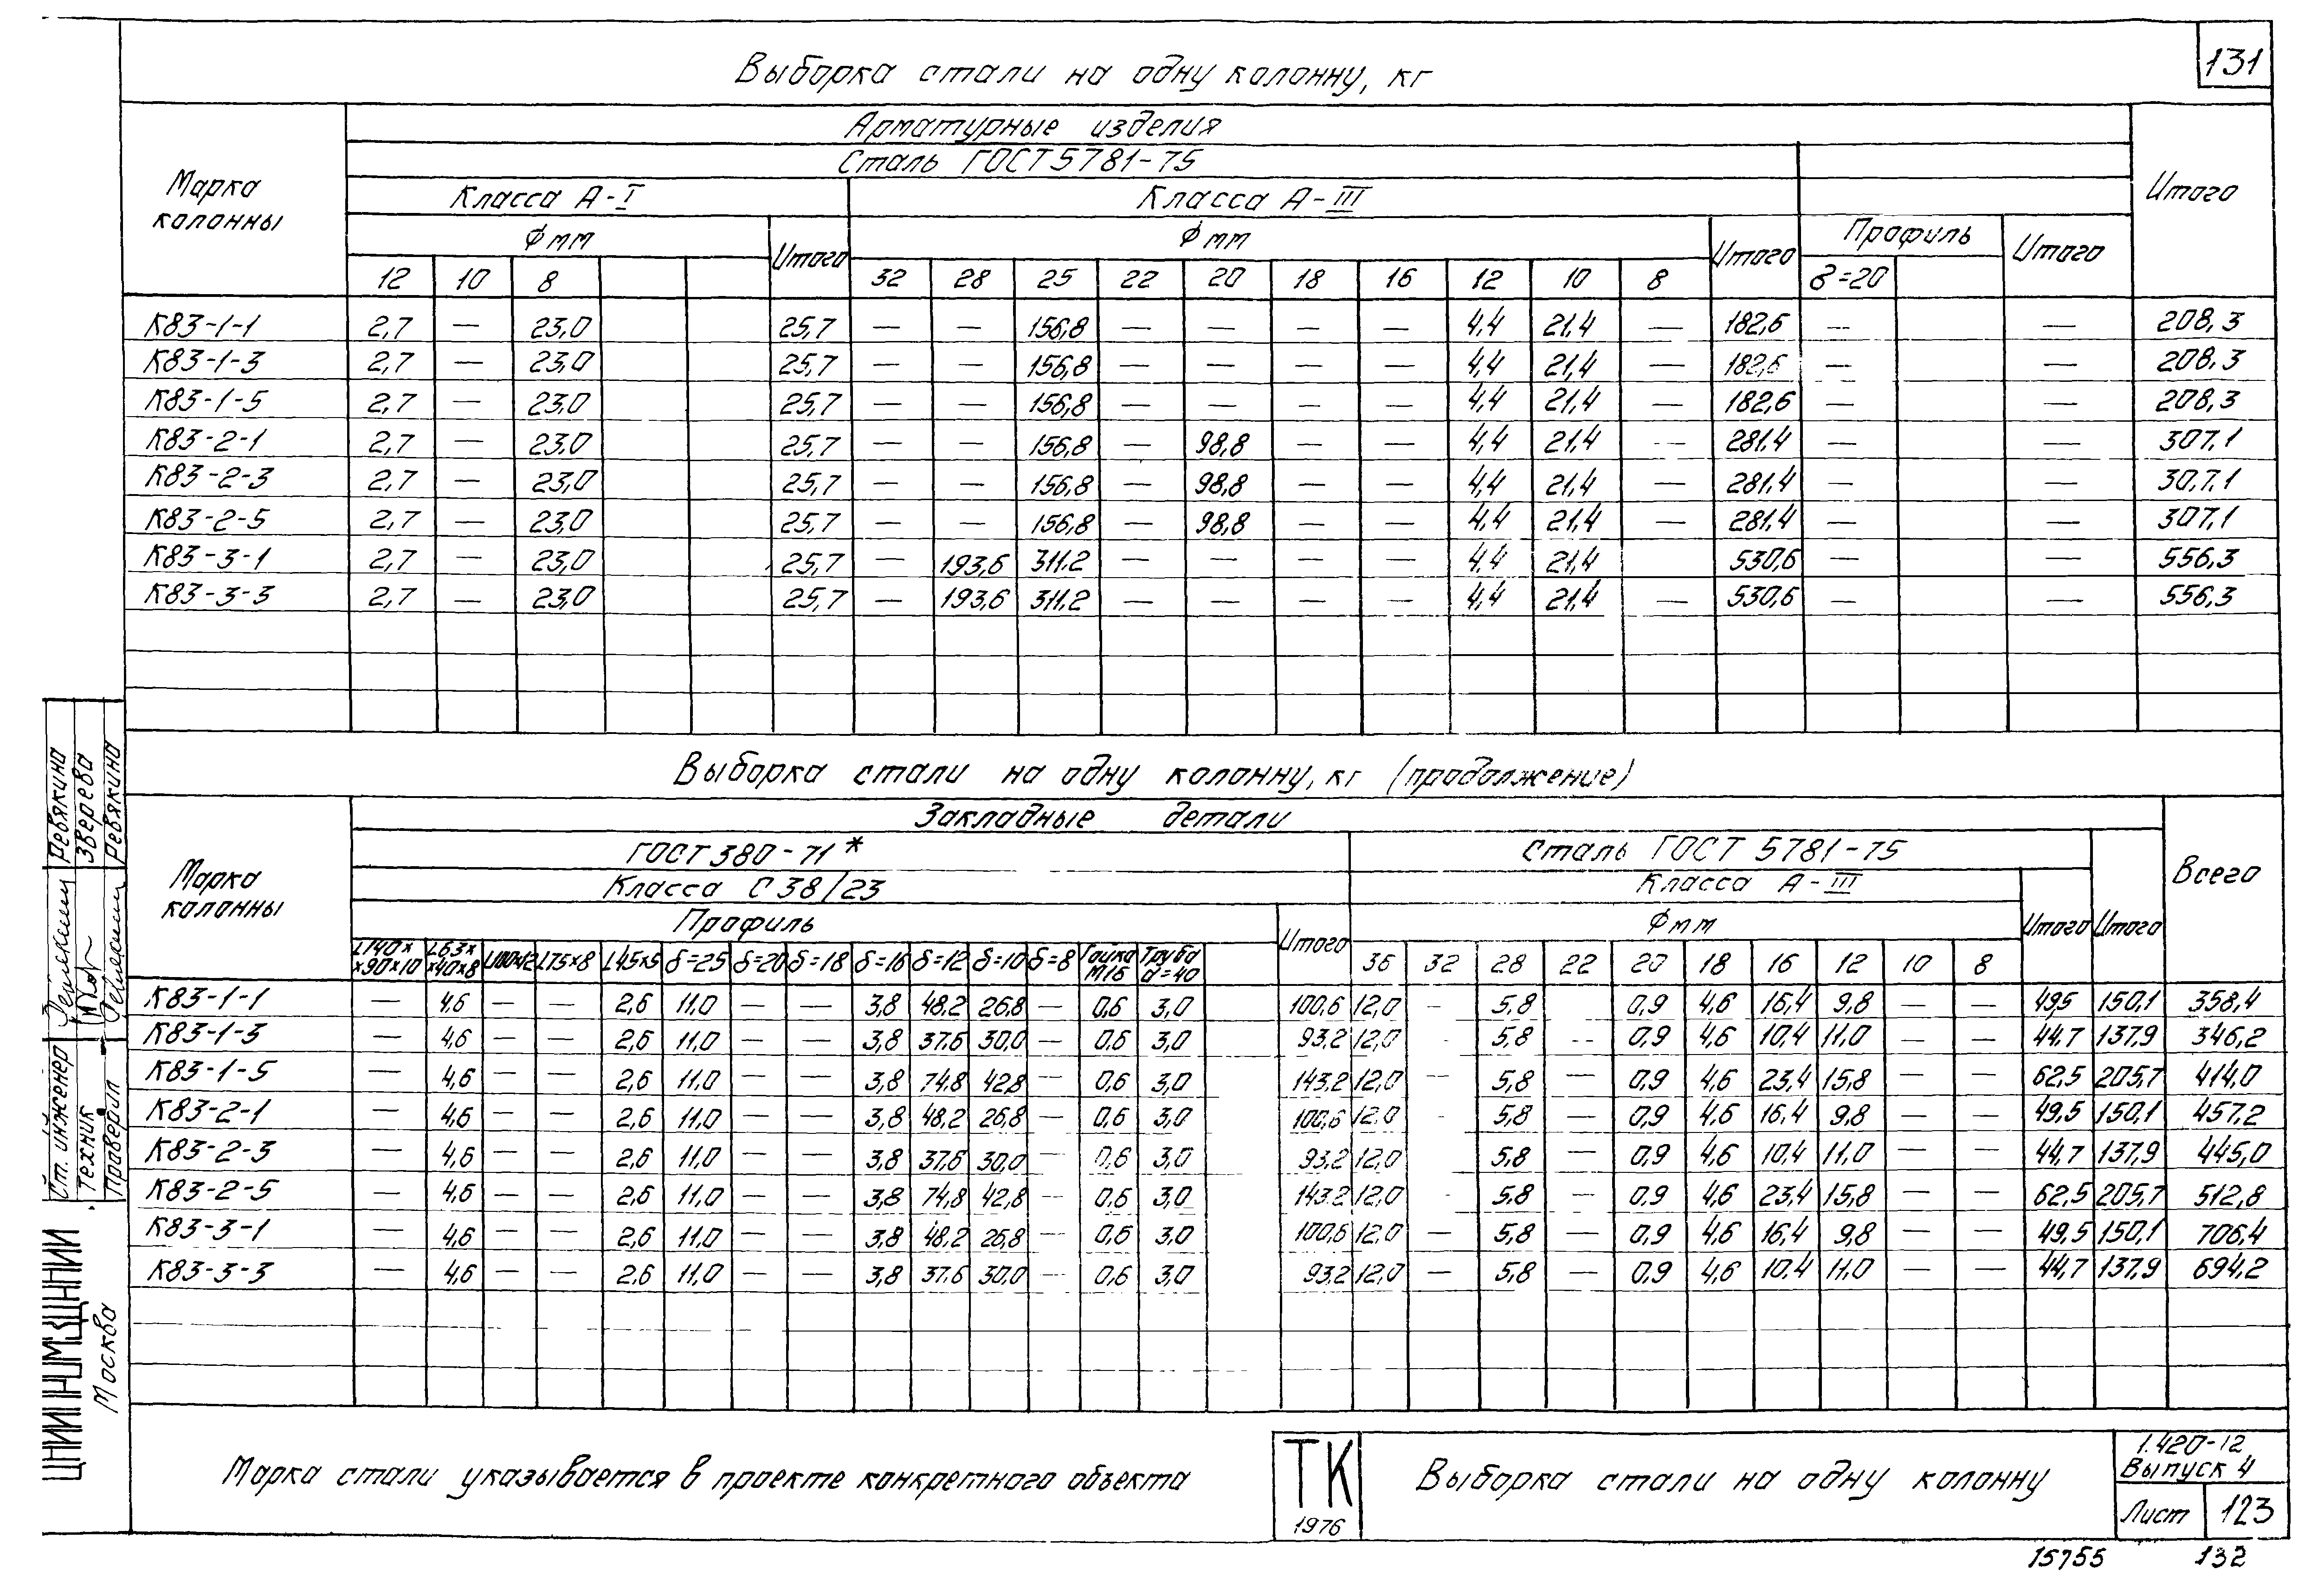 131
Выборка стали на одну колонну, кг
Марка колонны
Арматурные изделия
Итого
Сталь ГОСТ 5781-75
Класса А-I
Класса А-III
Ф мм
Итого
Ф мм
Итого
Профиль
Итого
12 10 8 32 28 25 22 20 18 16 12 10 8 δ=20
К83-1-1 2,7 — 23,0 25,7 — — 156,8 — — — — 4,4 21,4 — 182,6 — — 208,3
К83-1-3 2,7 — 23,0 25,7 — — 156,8 — — — — 4,4 21,4 — 182,6 — — 208,3
К83-1-5 2,7 — 23,0 25,7 — — 156,8 — — — — 4,4 21,4 — 182,6 — — 208,3
К83-2-1 2,7 — 23,0 25,7 — — 156,8 — 98,8 — — 4,4 21,4 — 281,4 — — 307,1
К83-2-3 2,7 — 23,0 25,7 — — 156,8 — 98,8 — — 4,4 21,4 — 281,4 — — 307,1
К83-2-5 2,7 — 23,0 25,7 — — 156,8 — 98,8 — — 4,4 21,4 — 281,4 — — 307,1
К83-3-1 2,7 — 23,0 25,7 — 193,6 311,2 — — — — 4,4 21,4 530,6 — — 556,3
К83-3-3 2,7 — 23,0 25,7 — 193,6 311,2 — — — — 4,4 21,4 — 530,6 — — 556,3
Выборка стали на одну колонну, кг (продолжение)
Марка колонны
Закладные детали
Всего
ГОСТ 380-71*
Сталь ГОСТ 5781-75
Класса С 38/23
Класса А-III
Профиль
Итого
Ф мм
Итого
Итого
L140××90×10 L63××40×8 L100×12 L75×8 L45×5 δ=25 δ=20 δ=18 δ=16 δ=12 δ=10 δ=8 Гайка М16 Труба d=40 36 32 28 22 20 18 16 12 10 8
К83-1-1 — 4,6 — — 2,6 11,0 — — 3,8 48,2 26,8 — 0,6 3,0 100,6 12,0 - 5,8 0,9 4,6 16,4 9,8 — — 49,5 150,1 358,4
К83-1-3 — 4,6 — — 2,6 11,0 — — 3,8 37,6 30,0 — 0,6 3,0 93,2 12,0 - 5,8 — 0,9 4,6 10,4 11,0 — — 44,7 137,9 346,2
К83-1-5 — 4,6 — — 2,6 11,0 — — 3,8 74,8 42,8 — 0,6 3,0 143,2 12,0 — 5,8 — 0,9 4,6 23,4 15,8 — — 62,5 205,7 414,0
К83-2-1 — 4,6 — — 2,6 11,0 — — 3,8 48,2 26,8 — 0,6 3,0 100,6 12,0 - 5,8 — 0,9 4,6 16,4 9,8 — — 49,5 150,1 457,2
К83-2-3 — 4,6 — — 2,6 11,0 — — 3,8 37,6 30,0 — 0,6 3,0 93,2 12,0 5,8 — 0,9 4,6 10,4 11,0 — — 44,7 137,9 445,0
К83-2-5 — 4,6 — — 2,6 11,0 — — 3,8 74,8 42,8 — 0,6 3,0 143,2 12,0 - 5,8 — 0,9 4,6 23,4 15,8 — — 62,5 205,7 512,8
К83-3-1 — 4,6 — — 2,6 11,0 — — 3,8 48,2 26,8 — 0,6 3,0 100,6 12,0 — 5,8 — 0,9 4,6 16,4 9,8 — — 49,5 150,1 706,4
К83-3-3 — 4,6 — — 2,6 11,0 — — 3,8 37,6 30,0 — 0,6 3,0 93,2 12,0 — 5,8 — 0,9 4,6 10,4 11,0 — — 44,7 137,9 694,2
Марка стали указывается в проекте конкретного объекта
ТК
1976
Выборка стали на одну колонну
1.420-12
Выпуск 4
Лист 123
15755 132
Ст. инженер Ревякина
Техник Зверева
Проверил Ревякина
Москва